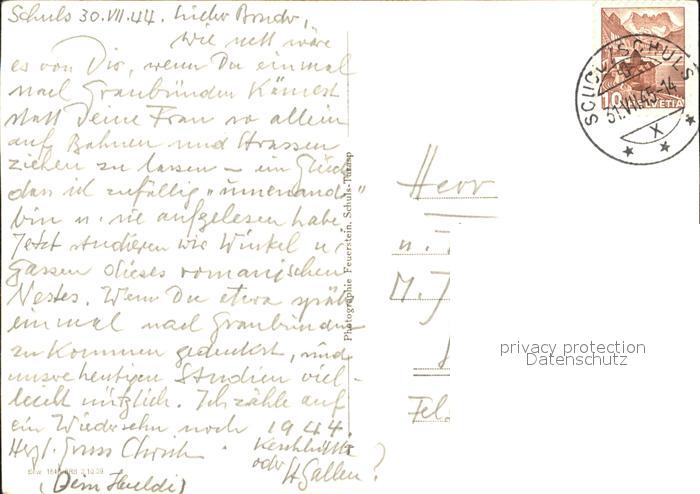 Schuls 30.VII.44. Lieber Bruder,
wie nett wäre
es von Dir, wenn Du einmal
nach Graubünden kämest
statt Deine Frau so allein
auf Bahnen und Strassen
ziehen zu lassen – ein Glück
dass ich zufällig
bin u. sie aufgelesen habe.
Jetzt studieren wir Winkel u.
Gassen dieses romanischen
Nestes. Wenn Du etwa später
einmal nach Graubünden
zu kommen gedenkst, sind
unsre heutigen Studien viel-
leicht nützlich. Ich zähle auf
ein Wiedersehn noch 1944.
Herzl. Gruss
oder St Gallen?
Photographie Feuerstein, Schuls-Tarasp
10 HELVETIA
SCUOL/SCHULS
31.VII.45-14
X
Herr
u.
M. J
Fel.
privacy protection
Datenschutz